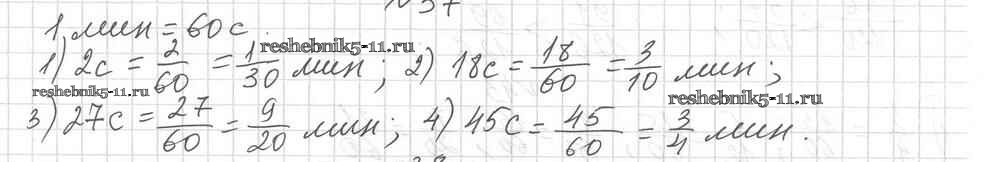 №37
1 мин = 60 с.
reshebnik5-11.ru
1) 2с = 2/60 = 1/30 мин; 2) 18с = 18/60 = 3/10 мин;
reshebnik5-11.ru
reshebnik5-11.ru
3) 27с = 27/60 = 9/20 мин; 4) 45с = 45/60 = 3/4 мин.